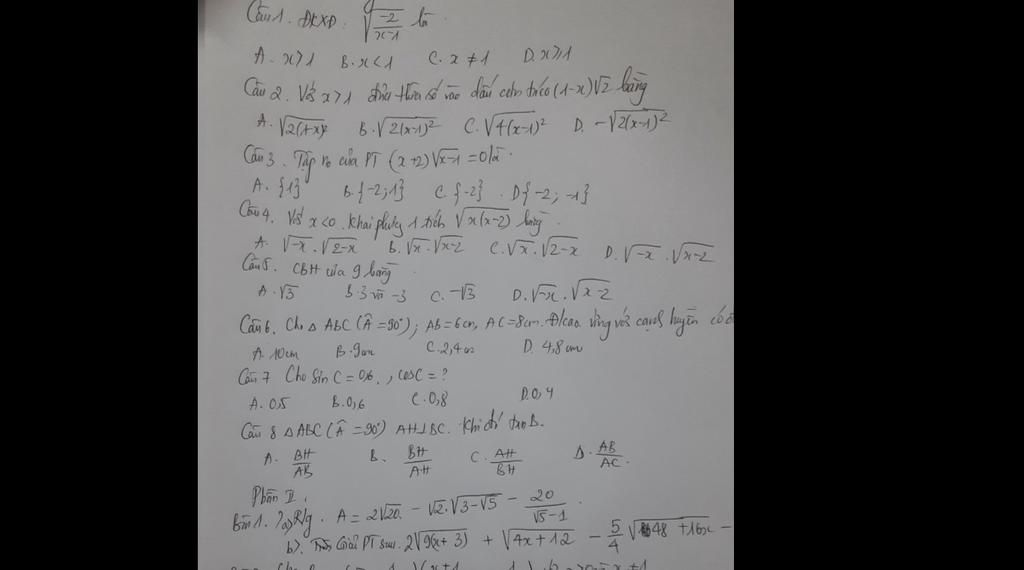 Câu 1. ĐKXĐ: √(-2/(x-1)) là
A. x>1 B. x<1 C. x ≠ 1 D. x≥1
Câu 2. Với x>1 đưa thừa số vào dấu căn (1-x)√2 bằng
A. √(2(1+x)²) B. √(2(x-1)²) C. √(4(x-1)²) D. -√(2(x-1)²)
Câu 3. Tập no của PT (x+2)√(x-1) = 0 là
A. {1} B. {-2; 1} C. {-2} D {-2; -1}
Câu 4. Với x<0. Khai phương 1 tích √(x(x-2)) bằng
A. √-x . √(2-x) B. √x . √(x-2) C. √x . √(2-x) D. √-x . √(x-2)
Câu 5. CBH của 9 bằng
A. √3 B. 3 và -3 C. -√3 D. √-x . √(x-2)
Câu 6. Cho Δ ABC (Â = 90°); AB = 6cm, AC = 8cm. Đ/cao ứng với cạnh huyền có
A. 10cm B. 9cm C. 2,4cm D. 4,8cm
Câu 7 Cho sin C = 0,6 , cosC = ?
A. 0,5 B. 0,6 C. 0,8 D. 0,4
Câu 8 Δ ABC (Â = 90°) AH⊥BC. Khi đó tan B.
A. BH/AB B. BH/AH C. AH/BH D. AB/AC.
Phần II.
Bài 1. a) R/g. A = 2√20 - √2.√(3-√5) - 20/(√5-1).
b). Giải PT sau. 2√(9(x+3)) + √(4x+12) - 5/4 √(48+16x) -